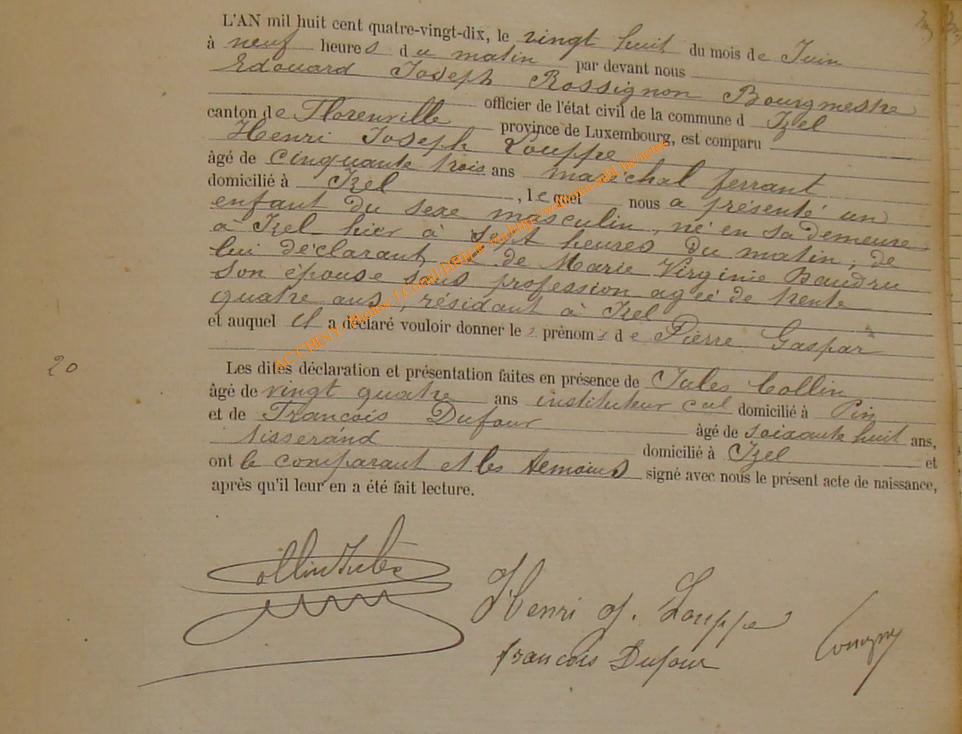 L'AN mil huit cent quatre-vingt-dix, le vingt huit du mois de Juin
à neuf heures du matin par devant nous
Edouard Joseph Rossignon Bourgmestre
officier de l'état civil de la commune d Izel
canton de Florenville province de Luxembourg, est comparu
Henri Joseph Louppe
âgé de cinquante trois ans maréchal ferrant
domicilié à Izel, lequel nous a présenté un
enfant du sexe masculin, né en sa demeure
à Izel hier à sept heures du matin, de
lui déclarant et de Marie Virginie Baudru
son épouse sans profession agée de trente
quatre ans, résidant à Izel
et auquel il a déclaré vouloir donner les prénoms de Pierre Gaspar
20
Les dites déclaration et présentation faites en présence de Jules Collin
âgé de vingt quatre ans instituteur domicilié à Pin
et de François Dufour âgé de soixante huit ans,
tisserand domicilié à Izel et
ont le comparant et les témoins signé avec nous le présent acte de naissance,
après qu'il leur en a été fait lecture.
Collin Jules
Henri J. Louppe
François Dufour